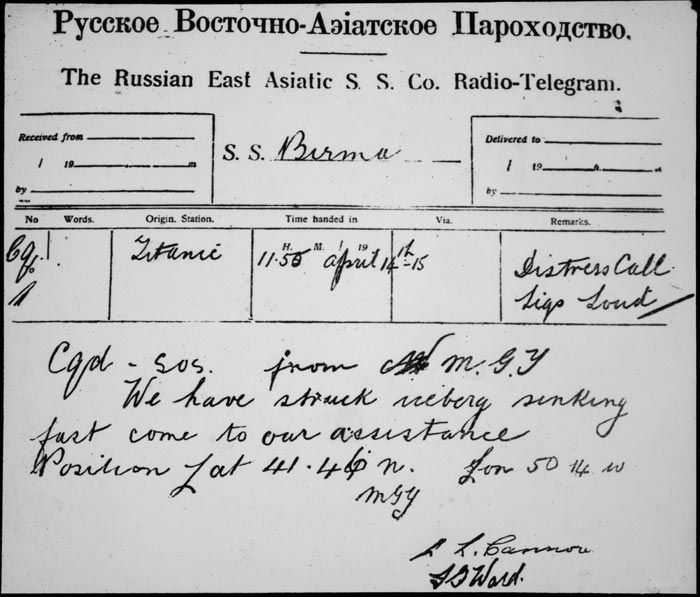 Русское Восточно-Азіатское Пароходство.
The Russian East Asiatic S. S. Co. Radio-Telegram.
Received from
/ 19 m
by
S. S. Birma
Delivered to
/ 19
by
No Words. Origin. Station. Time handed in. Via. Remarks.
H. M. / 19
Cqd Titanic 11.50 April 14th-15 Distress Call
1 Sigs Loud
Cqd - SOS. from M. G. Y
We have struck iceberg sinking
fast come to our assistance
Position Lat 41.46 n. Lon 50 14 w
MGY
L. Cannon
Ward.